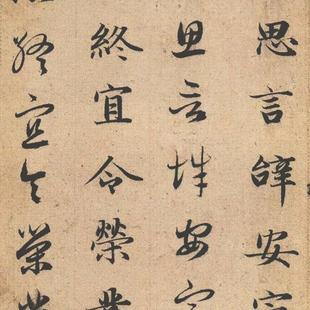 思言辭安定
思言辭安定
終宜令榮業
終宜令榮業